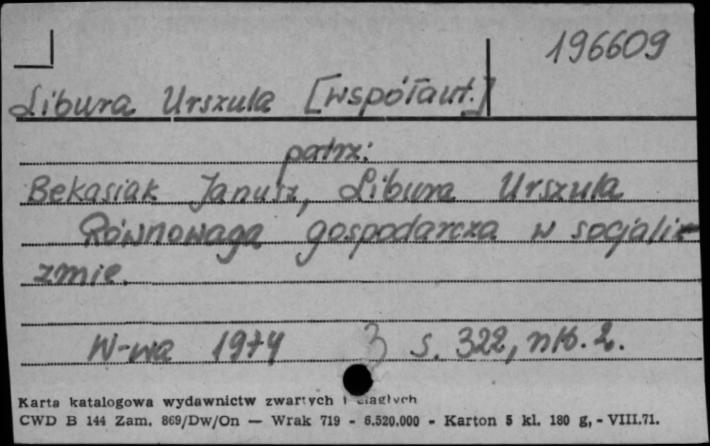 196609
Libura Urszula [współaut.]
patrz:
Bekasiak Janusz, Libura Urszula
Równowaga gospodarcza w socjali-
zmie.
W-wa 1974 3 s. 322, nlb. 2.
Karta katalogowa wydawnictw zwartych i ciągłych
CWD B 144 Zam. 869/Dw/On — Wrak 719 - 6.520.000 - Karton 5 kl. 180 g, - VIII.71.